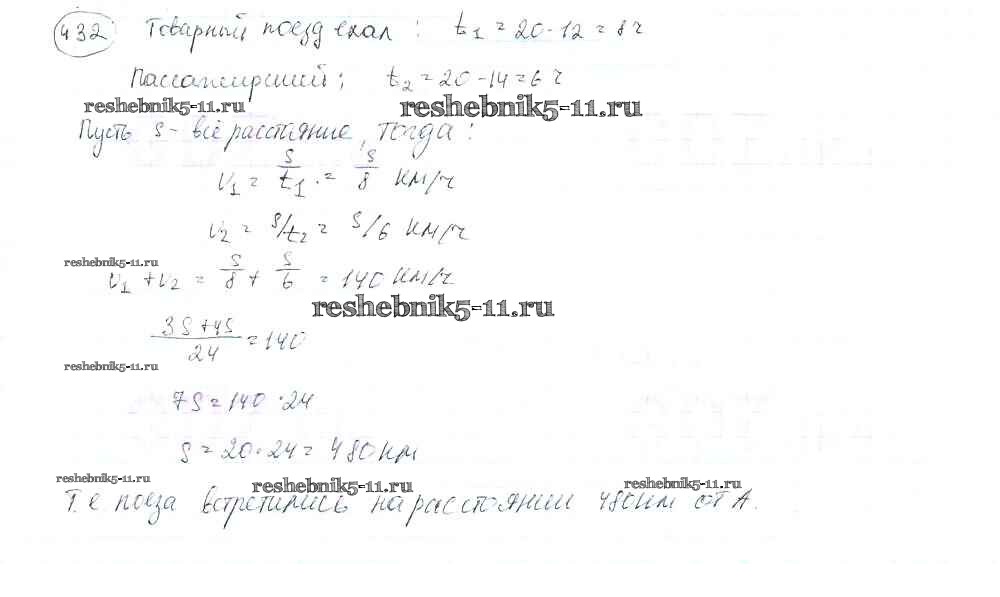 432 Товарный поезд ехал : t₁ = 20 - 12 = 8ч
Пассажирский; t₂ = 20 - 14 = 6ч
reshebnik5-11.ru reshebnik5-11.ru
Пусть S - всё расстояние, тогда:
v₁ = S/t₁ = S/8 км/ч
v₂ = S/t₂ = S/6 км/ч
reshebnik5-11.ru
v₁ + v₂ = S/8 + S/6 = 140 км/ч
reshebnik5-11.ru
3S+4S/24 = 140
reshebnik5-11.ru
7S = 140 · 24
S = 20 · 24 = 480 км
reshebnik5-11.ru reshebnik5-11.ru reshebnik5-11.ru
Т.е. поеза встретились на расстоянии 480км от А.
reshebnik5-11.ru